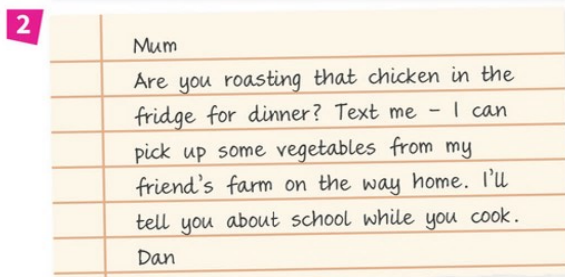 2
Mum
Are you roasting that chicken in the
fridge for dinner? Text me – I can
pick up some vegetables from my
friend's farm on the way home. I'll
tell you about school while you cook.
Dan